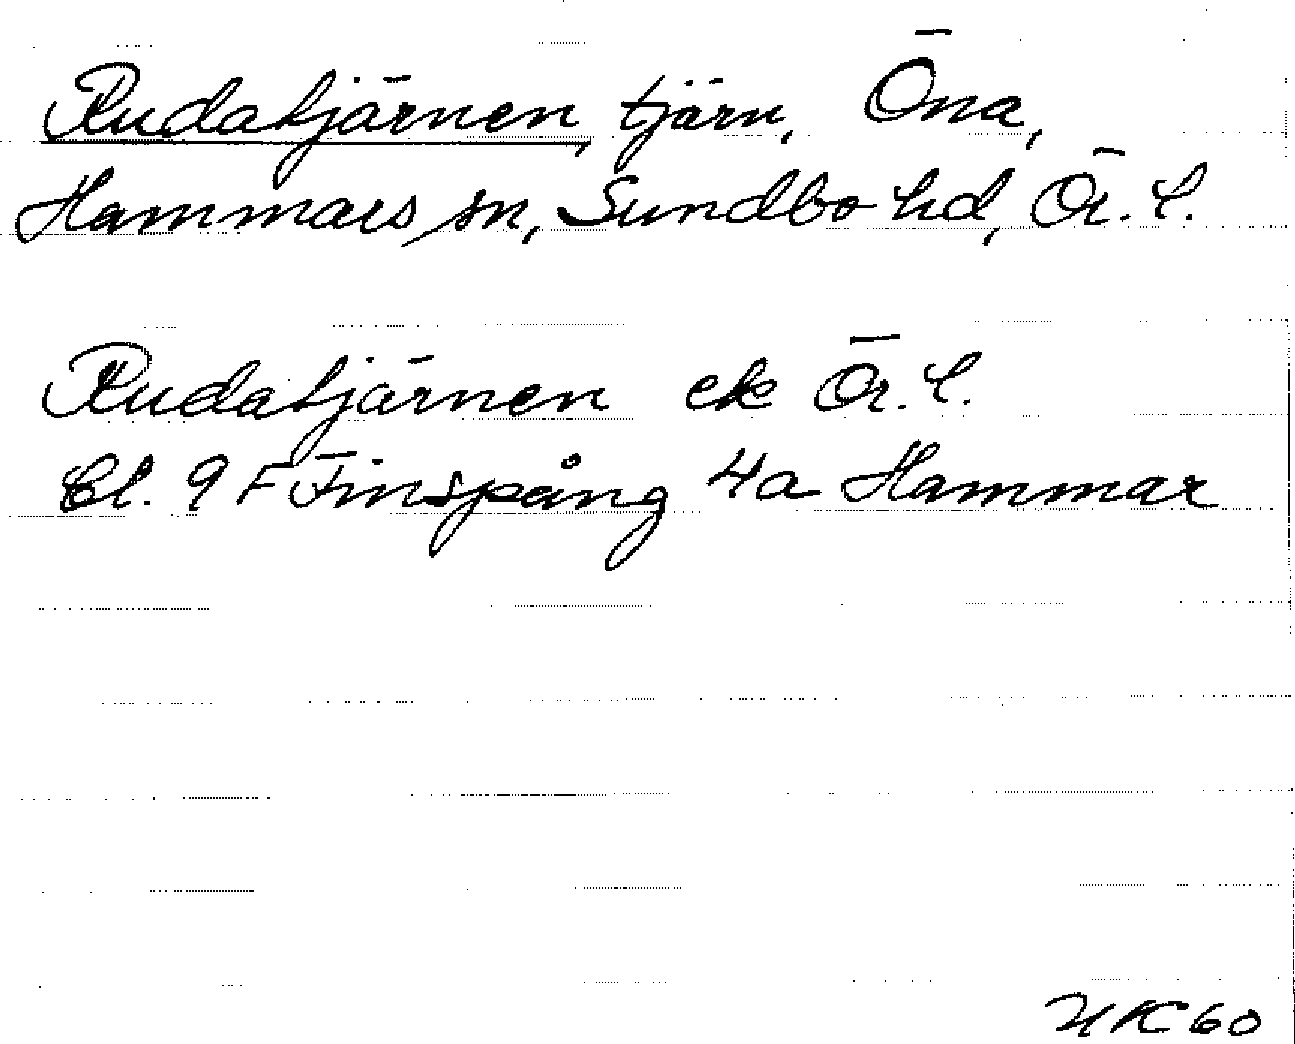 Rudatjärnen, tjärn, Öna,
Hammars sn, Sundbo hd, Ör. l.
Rudatjärnen ek Ör. l.
Bl. 9 F Finspång 4a Hammar
HK 60